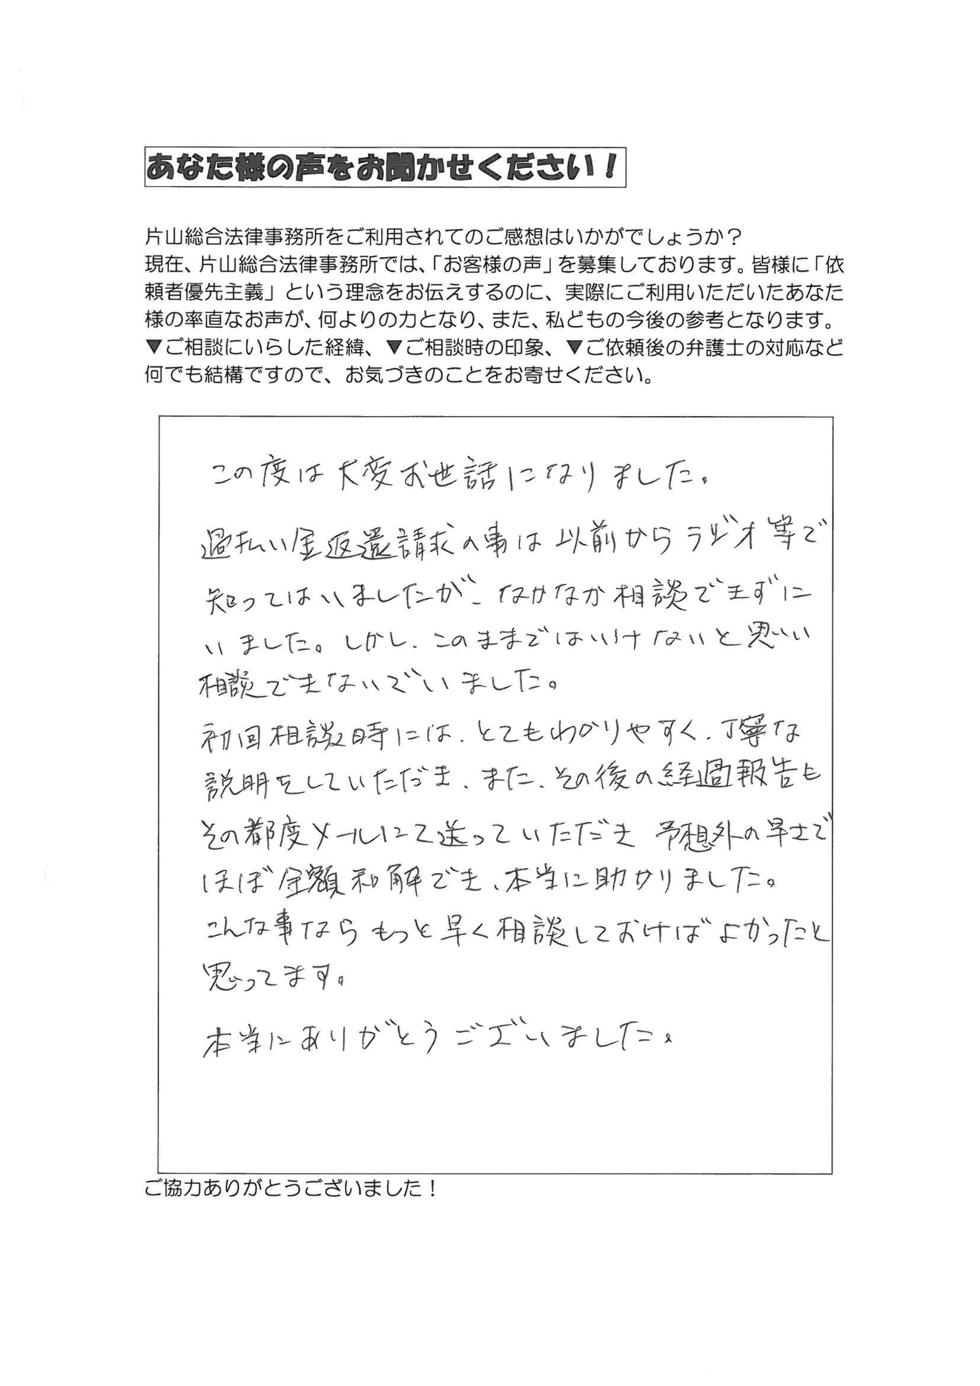 あなた様の声をお聞かせください！
片山総合法律事務所をご利用されてのご感想はいかがでしょうか？
現在、片山総合法律事務所では、「お客様の声」を募集しております。皆様に「依
頼者優先主義」という理念をお伝えするのに、実際にご利用いただいたあなた
様の率直なお声が、何よりの力となり、また、私どもの今後の参考となります。
▼ご相談にいらした経緯、▼ご相談時の印象、▼ご依頼後の弁護士の対応など
何でも結構ですので、お気づきのことをお寄せください。
この度は大変お世話になりました。
過払い金返還請求の事は以前からラジオ等で
知ってはいましたが、なかなか相談できずに
いました。しかし、このままではいけないと思い
相談できないでいました。
初回相談時には、とてもわかりやすく、丁寧な
説明をしていただき、また、その後の経過報告も
その都度メールにて送っていただき 予想外の早さで
ほぼ金額和解でき、本当に助かりました。
こんな事ならもっと早く相談しておけばよかったと
思ってます。
本当にありがとうございました。
ご協力ありがとうございました！